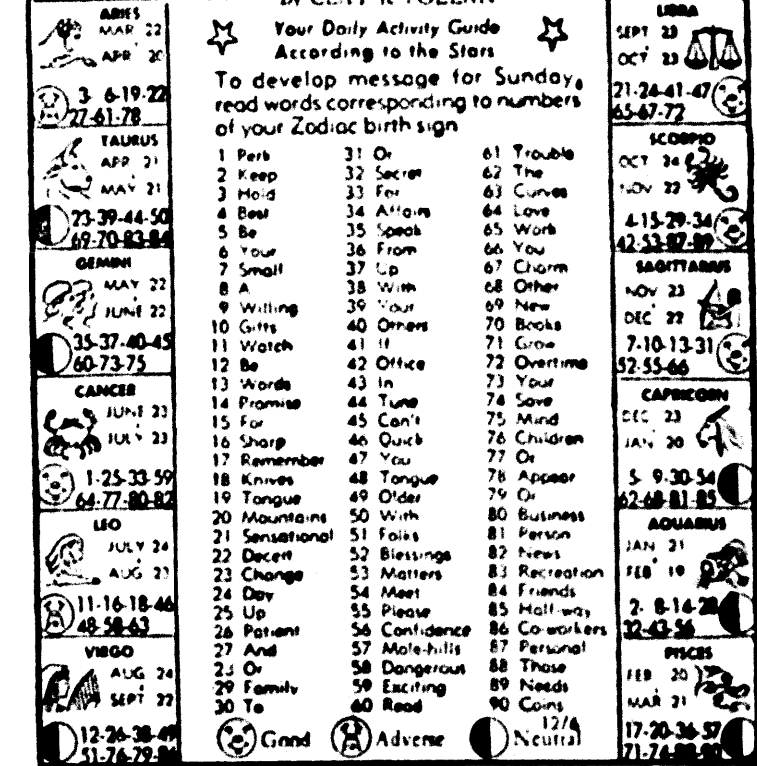 ARIES
MAR 22
APR 20
3- 6-19-22
27-61-78
TAURUS
APR 21
MAY 21
23-39-44-50
69-70-83-84
GEMINI
MAY 22
JUNE 22
35-37-40-45
60-73-75
CANCER
JUNE 23
JULY 23
1-25-33-59
64-77-80-82
LEO
JULY 24
AUG 23
11-16-18-46
48-58-63
VIRGO
AUG 24
SEPT 22
12-26-38-49
51-76-79-86
Your Daily Activity Guide
According to the Stars
To develop message for Sunday,
read words corresponding to numbers
of your Zodiac birth sign
1 Perk
2 Keep
3 Hold
4 Best
5 Be
6 Your
7 Small
8 A
9 Willing
10 Gifts
11 Watch
12 Be
13 Words
14 Promise
15 For
16 Sharp
17 Remember
18 Knives
19 Tongue
20 Mountains
21 Sensational
22 Deceit
23 Change
24 Day
25 Up
26 Patient
27 And
28 Or
29 Family
30 To
31 Or
32 Secret
33 For
34 Affairs
35 Speak
36 From
37 Up
38 With
39 Your
40 Others
41 If
42 Office
43 In
44 Tune
45 Can't
46 Quick
47 You
48 Tongue
49 Older
50 With
51 Folks
52 Blessings
53 Matters
54 Meet
55 Please
56 Confidence
57 Mole-hills
58 Dangerous
59 Exciting
60 Read
61 Trouble
62 The
63 Curves
64 Love
65 Work
66 You
67 Charm
68 Other
69 New
70 Books
71 Grow
72 Overtime
73 Your
74 Save
75 Mind
76 Children
77 Or
78 Appear
79 Or
80 Business
81 Person
82 News
83 Recreation
84 Friends
85 Half-way
86 Co-workers
87 Personal
88 Those
89 Needs
90 Coins
12/6
Good Adverse Neutral
LIBRA
SEPT 23
OCT 23
21-24-41-47
65-67-72
SCORPIO
OCT 24
NOV 22
4-15-29-34
42-53-87-89
SAGITTARIUS
NOV 23
DEC 22
7-10-13-31
52-55-66
CAPRICORN
DEC 23
JAN 20
5- 9-30-54
62-68-81-85
AQUARIUS
JAN 21
FEB 19
2- 8-14-28
32-43-56
PISCES
FEB 20
MAR 21
17-20-36-57
71-74-88-90